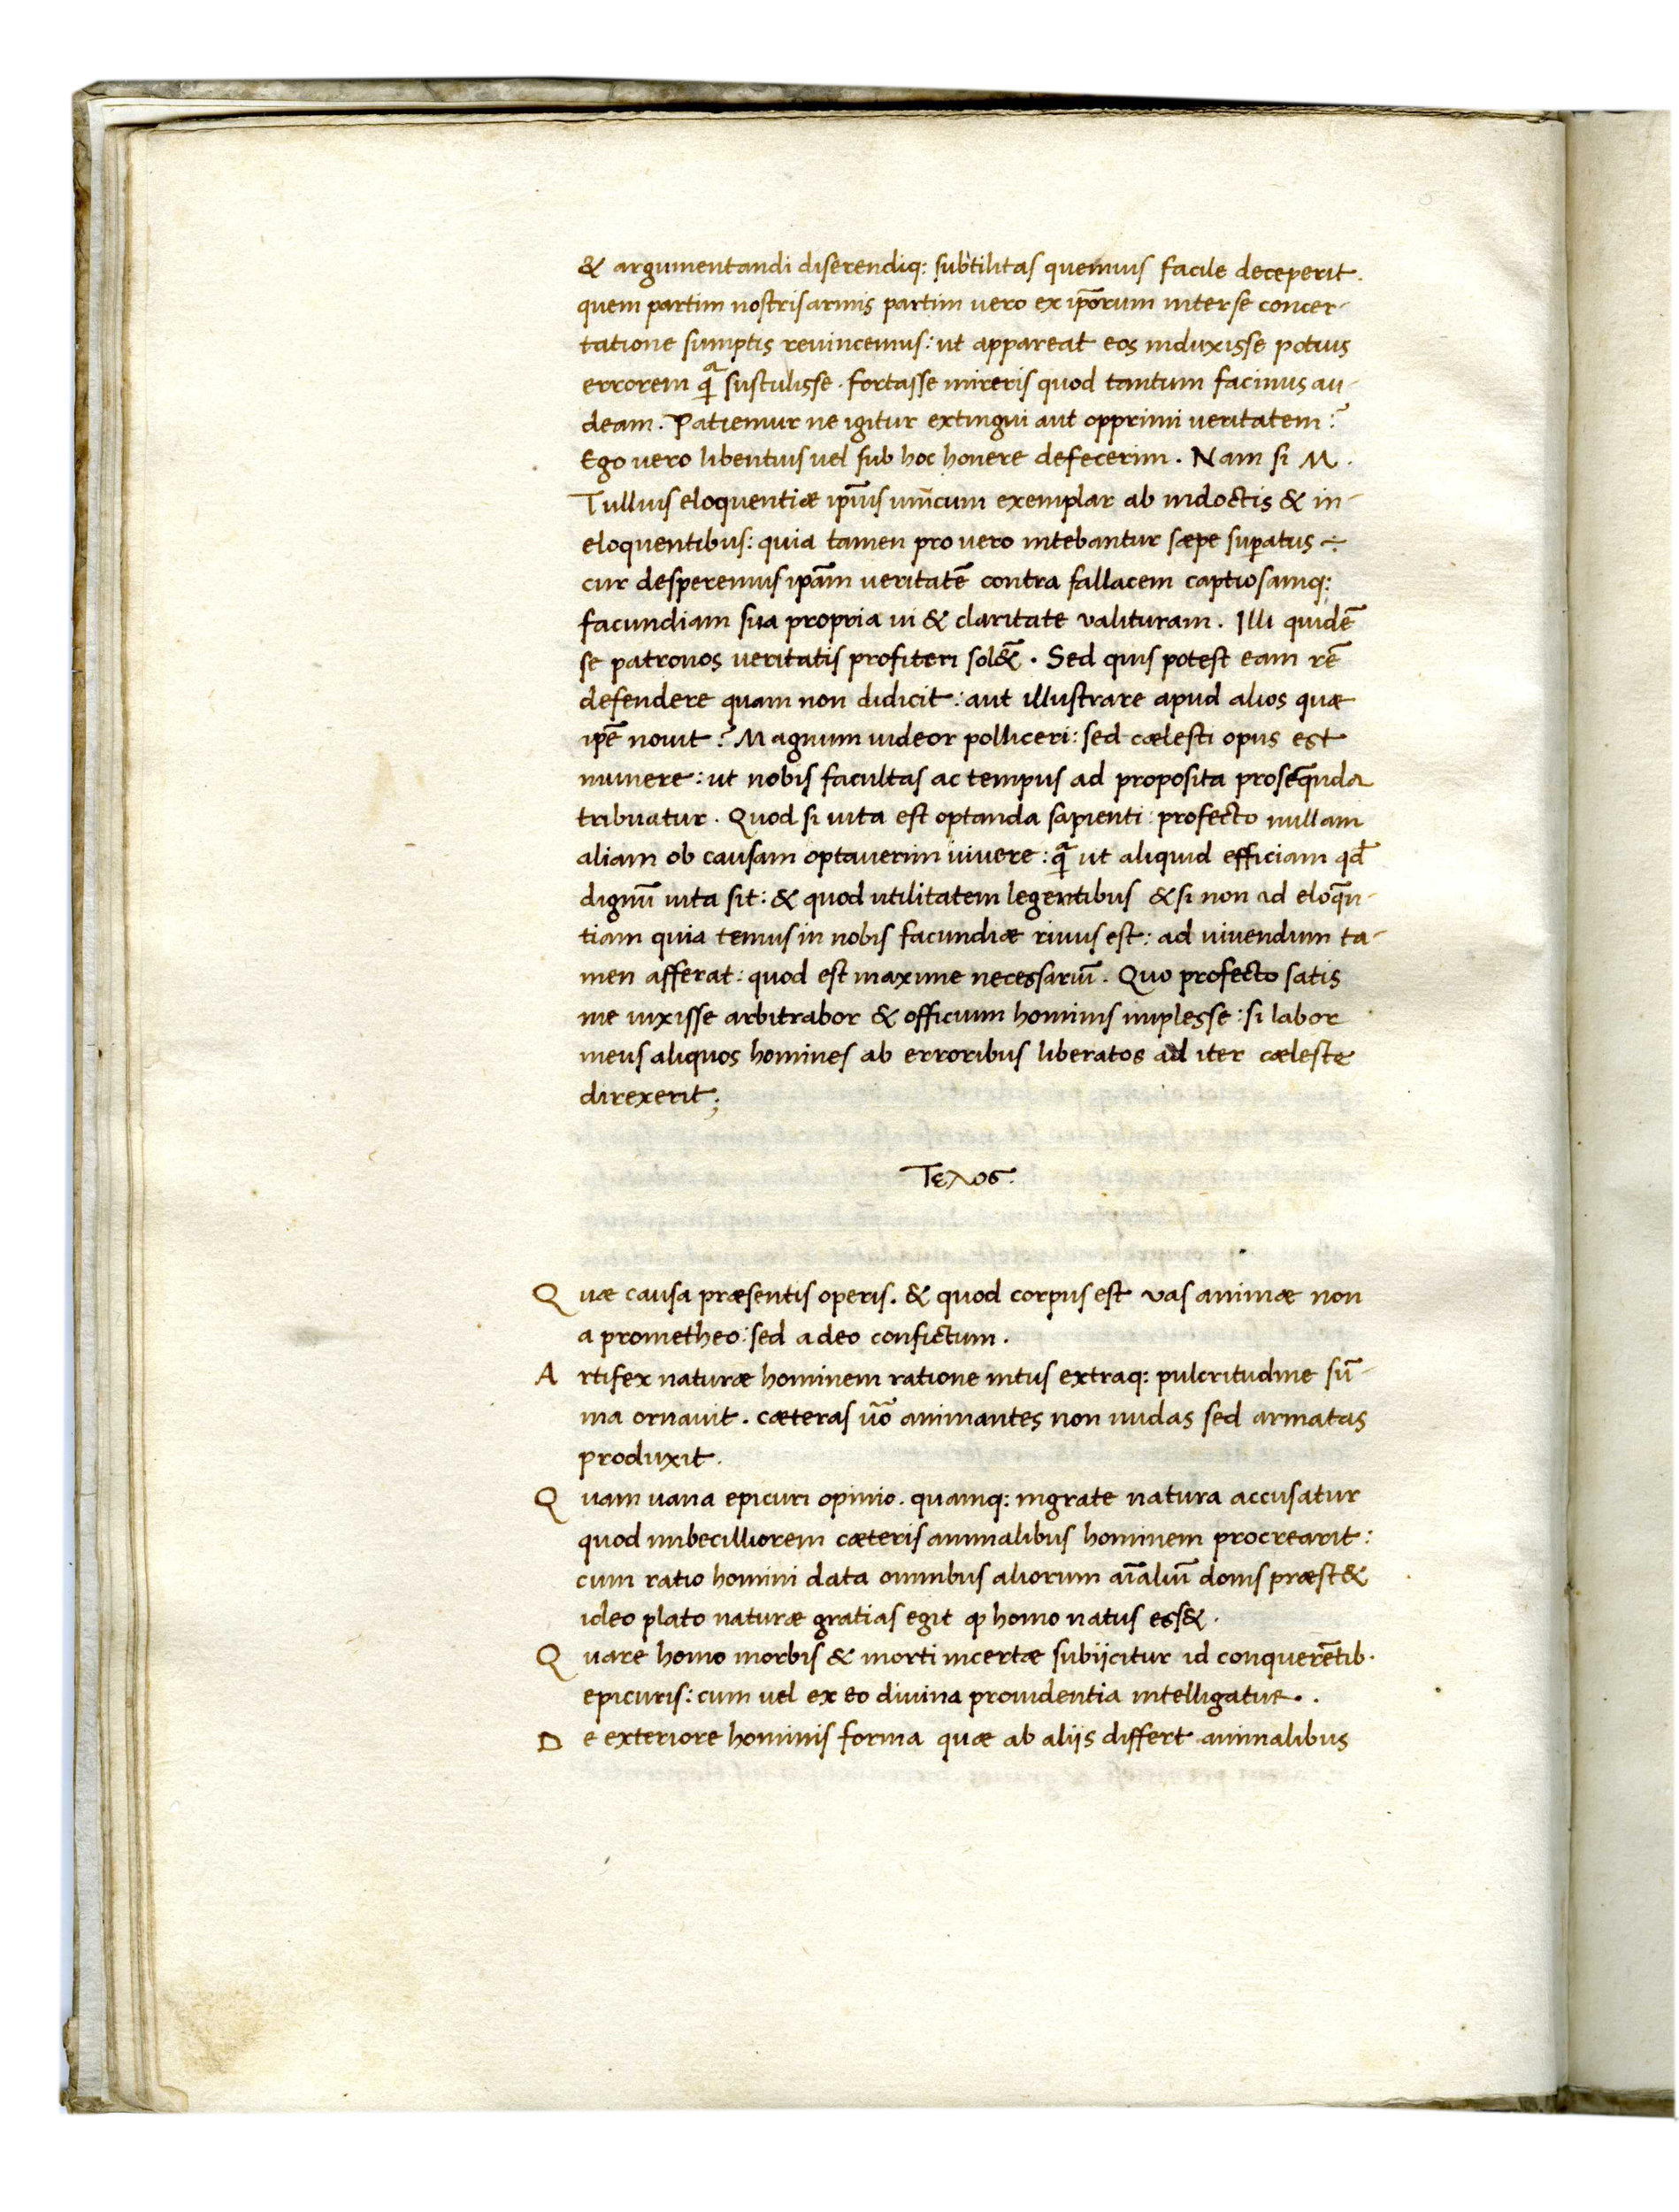 & argumentandi diserendiq: subtilitas quemuis facile deceperit.
quem partim nostris armis partim uero ex ip̄orum inter se concer-
tatione sumptis reuincemus: ut appareat eos induxisse potius
errorem qᷓ sustulisse. fortasse mireris quod tantum facinus au-
deam. Patiemur ne igitur extingui aut opprimi ueritatem?
Ego uero libentius uel sub hoc honere defecerim. Nam si M.
Tullius eloquentiæ ip̄ius unicum exemplar ab indoctis & in-
eloquentibus: quia tamen pro uero nitebantur sæpe sup̄atus ÷
cur desperemus ip̄am ueritatē contra fallacem captiosamq:
facundiam sua propria ui & claritate valituram. Illi quidē
se patronos ueritatis profiteri sol&̄. Sed quis potest eam rē
defendere quam non didicit: aut illustrare apud alios quæ
ip̄e nouit? Magnum uideor polliceri: sed cælesti opus est
munere: ut nobis facultas ac tempus ad proposita proseq̄nda
tribuatur. Quod si uita est optanda sapienti: profecto nullam
aliam ob causam optauerim uiuere: qᷓ ut aliquid efficiam qd̄
dignū uita sit: & quod utilitatem legentibus & si non ad eloq̄n-
tiam quia tenuis in nobis facundiæ riuus est: ad uiuendum ta-
men afferat: quod est maxime necessariū. Quo profecto satis
me uixisse arbitrabor & officium hominis implesse: si labor
meus aliquos homines ab erroribus liberatos ad iter cæleste
direxerit;
Τελος.
Quæ causa præsentis operis. & quod corpus est vas animæ non
a prometheo: sed a deo confictum.
Artifex naturæ hominem ratione intus extraq: pulcritudine sū-
ma ornauit. cæteras ūo animantes non nudas sed armatas
produxit.
Quam uana epicuri opinio. quamq: ingrate natura accusatur
quod imbecilliorem cæteris animalibus hominem procrearit:
cum ratio homini data omnibus aliorum aīaliū donis præst&
ideo plato naturæ gratias egit ꝙ homo natus ess&.
Quare homo morbis & morti incertæ subiicitur id conquerētib.
epicuris: cum uel ex eo diuina prouidentia intelligatur..
De exteriore hominis forma quæ ab aliis differt animalibus